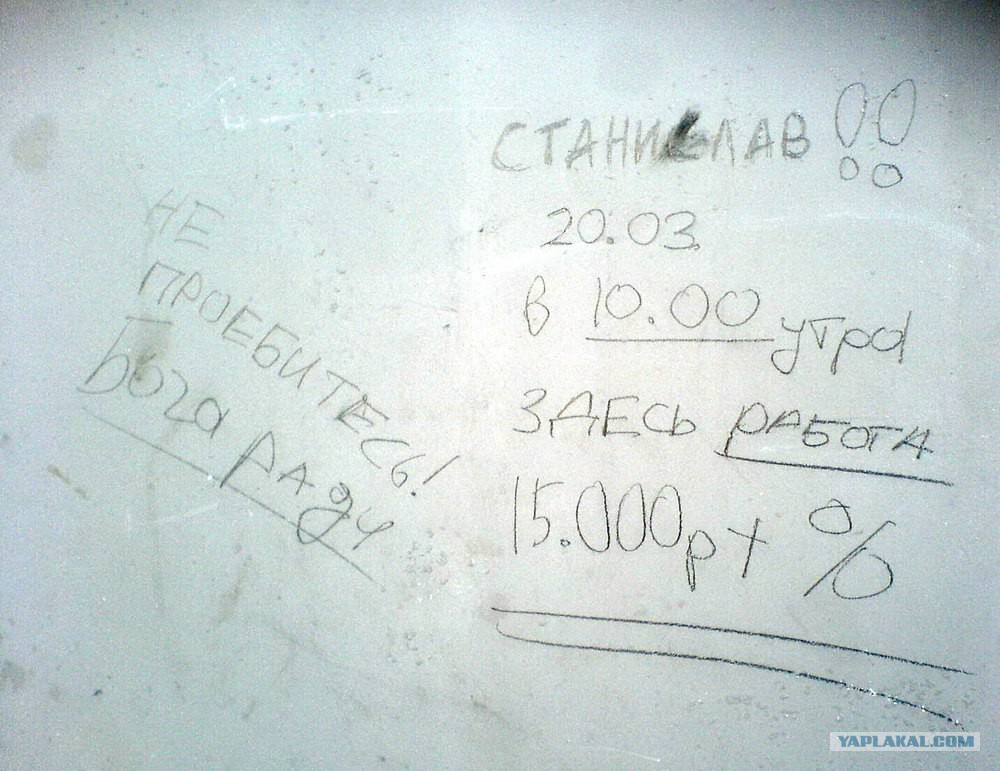 СТАНИСЛАВ !!
20.03.
в 10.00 утра
ЗДЕСЬ РАБОТА
15.000р + %
НЕ
ПРОЕБИТЕСЬ!
Бога ради
YAPLAKAL.COM